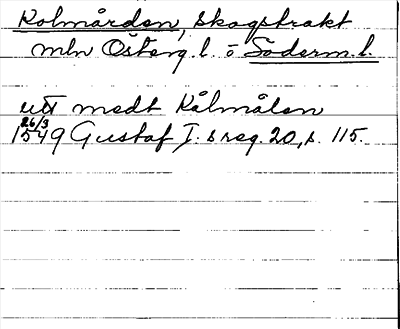 Kolmården, skogstrakt
mln Österg.l. o Söderm.l.
utt medt Kålmålen
26/3
1549 Gustaf I:s reg. 20, s. 115.